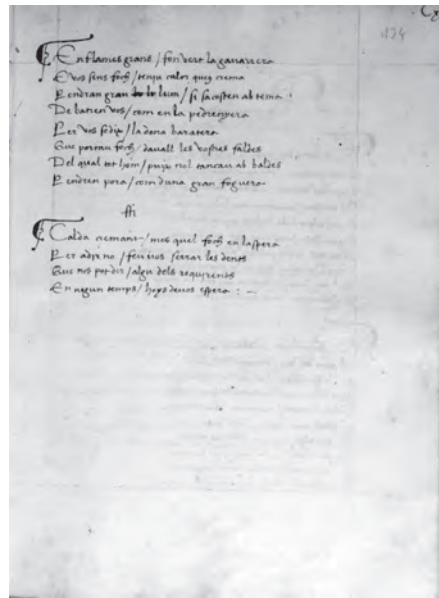 Cx
134
En flames grans / fon vert la gavarrera
E vos sens foch / teniu calor queus crema
Pendran gran lum / si sacosten ab tema
De batien vos / com en la pedrenyera
Per vos se diu / la dona baratera
Que portau foch / davall les vostres faldes
Del qual tot hom / puix nol tancau ab baldes
Pendren pora / com duna gran foguera
ffi
Calda cremant / mes quel foch en laspera
Per adir no / feu vos serrar les dents
Que nos pot dir / algu dels requirents
En negun temps / hoys devos espera : ~